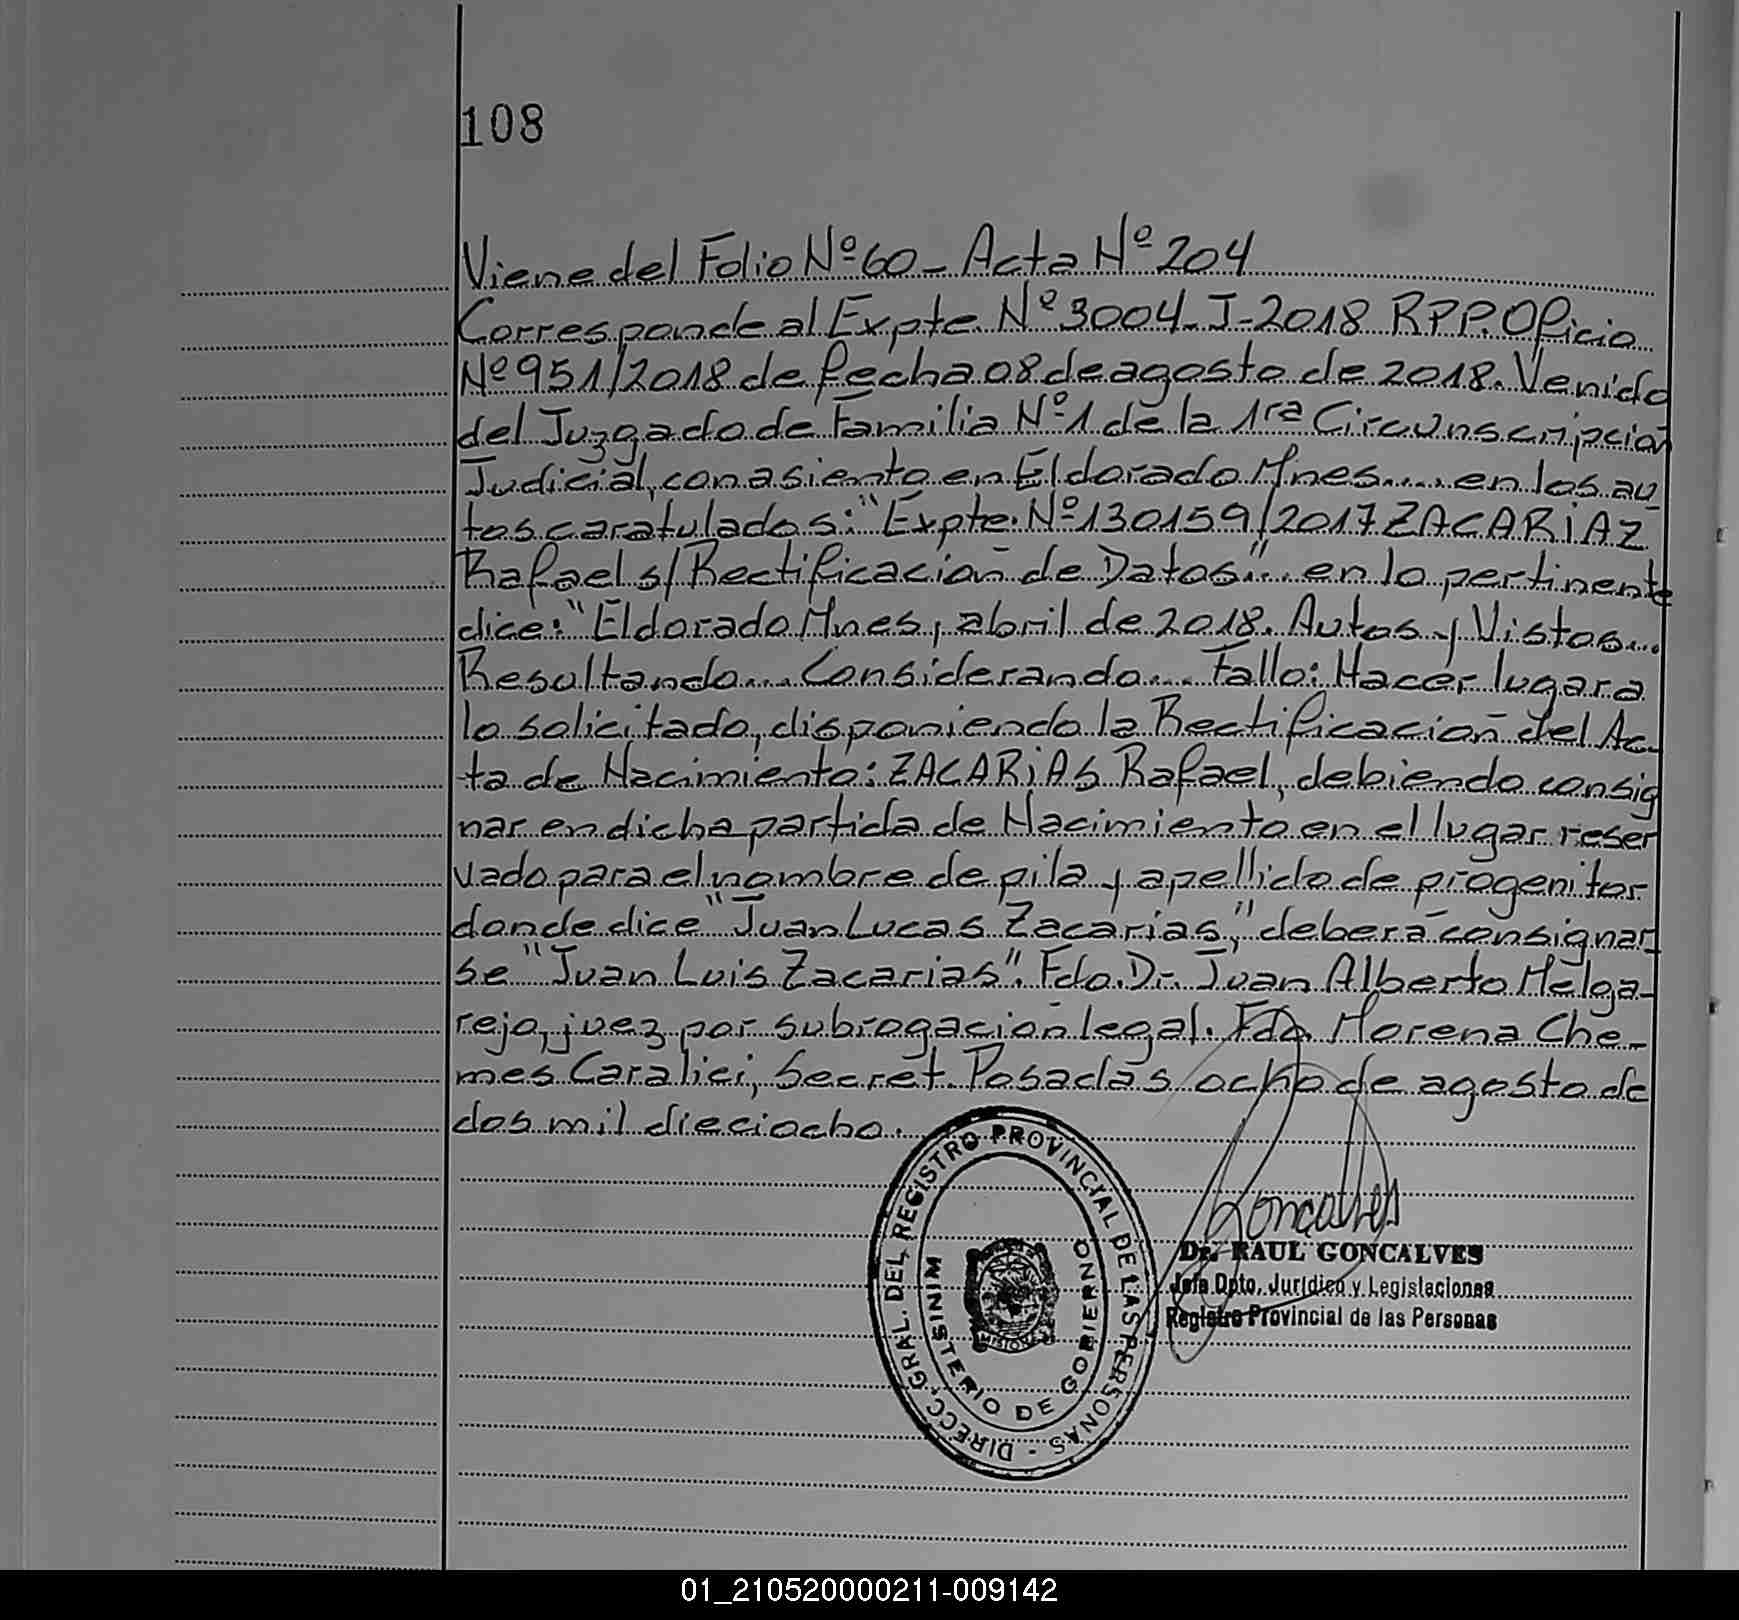 108
Viene del Folio Nº 60 - Acta Nº 204
Corresponde al Expte. Nº 3004-J-2018 RPP. Oficio
Nº 951/2018 de fecha 08 de agosto de 2018. Venido
del Juzgado de Familia Nº 1 de la 1ra Circunscripción
Judicial, con asiento en Eldorado Mnes..... en los au
tos caratulados: "Expte. Nº 130159/2017 ZACARIAZ
Rafael s/ Rectificación de Datos"... en lo pertinente
dice: "Eldorado Mnes, abril de 2018. Autos y Vistos...
Resultando.... Considerando.... Fallo: Hacer lugar a
lo solicitado, disponiendo la Rectificación del Ac-
ta de Nacimiento: ZACARIAS Rafael, debiendo consig
nar en dicha partida de Nacimiento en el lugar reser
vado para el nombre de pila y apellido de progenitor
donde dice "Juan Lucas Zacarias," deberá consignar
se "Juan Luis Zacarias". Fdo. Dr. Juan Alberto Melga-
rejo, juez por subrogación legal. Fdo. Morena Che-
mes Caralici, Secret. Posadas ocho de agosto de
dos mil dieciocho.
DIRECC. GRAL. DEL REGISTRO PROVINCIAL DE LAS PERSONAS -
MINISTERIO DE GOBIERNO
MISIONES
Goncalves
Dr. RAUL GONCALVES
Jefe Dpto. Jurídico y Legislaciones
Registro Provincial de las Personas
01_210520000211-009142